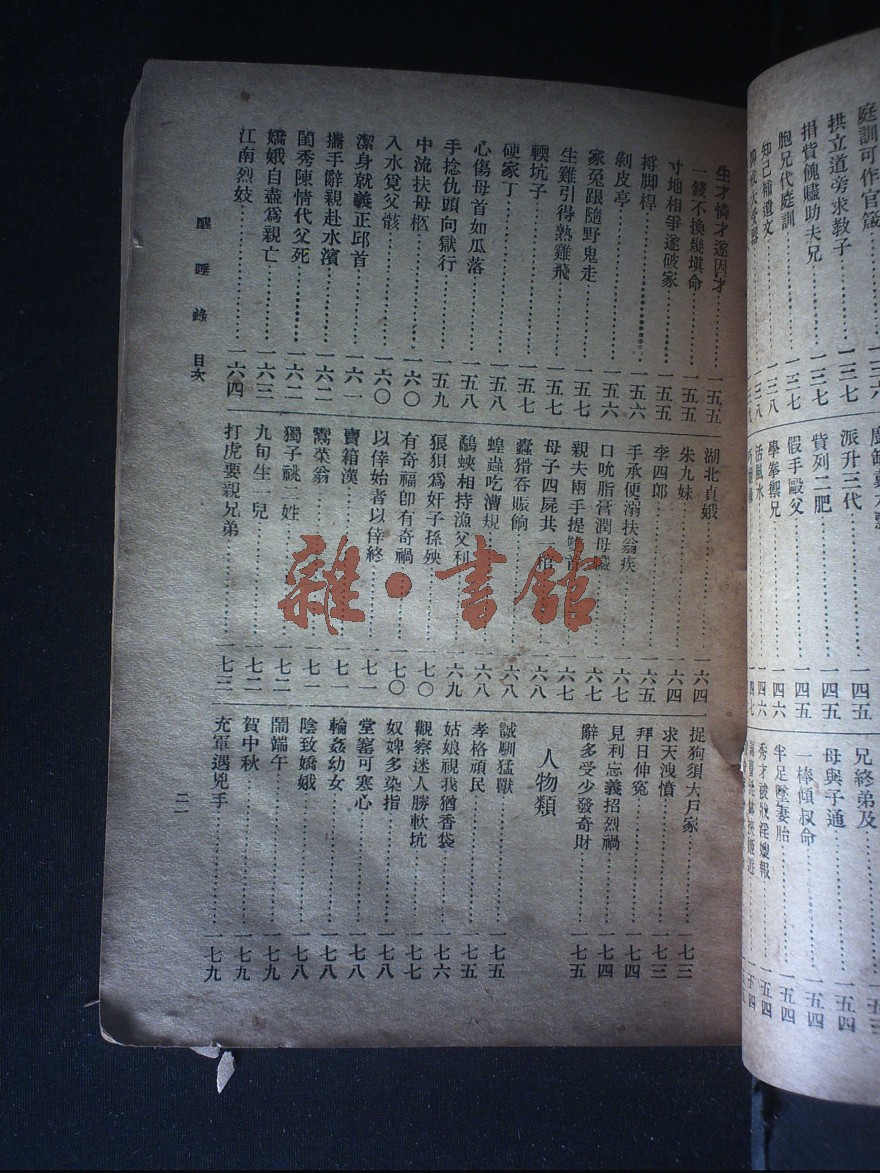 庭訓可作官箴
拱立道旁求教子……一三七
捐貲餽贐助夫兄……一三七
胞兄代庭訓……一三七
知己補遺文……一三八
派升三代……一四五
貲列二肥……一四五
假手毆父……一四五
學拳禦兄……一四六
活風水……一四六
兄終弟及……一五三
母與子通……一五四
一棒傾叔命……一五四
半足墜妻胎……一五四
生才憐才遂因才……一五五
一錢不換幾塡命……一五五
寸地相爭遂破家……一五五
捋脚桿……一五六
剝皮亭……一五六
家兔跟隨野鬼走……一五七
生雞引得熟雞飛……一五七
輭坑子……一五七
硬家丁……一五八
心傷母首如瓜落……一五八
手捻仇頭向獄行……一五九
中流扶母柩……一六〇
入水覓父骸……一六〇
潔身就義正邱首……一六一
攜手辭親赴水濱……一六二
閨秀陳情代父死……一六二
嬌娥自盡爲親亡……一六三
江南烈妓……一六四
湖北貞娥……一六四
朱九妹……一六四
李四郎……一六五
手承便溺扶翁疾……一六七
口吮脂膏潤母臟……一六七
親夫兩手提雙首……一六七
母子四屍共一棺……一六八
蠹猾吞賑餉……一六八
蝗蟲吃漕規……一六八
鷸蛺相持漁父利……一六九
狼狽爲奸子孫殃……一七〇
有奇福卽有奇禍……一七〇
以倖始者以倖終……一七一
賣箱漢……一七一
鬻菜翁……一七一
獨子祧二姓……一七二
九旬生一兒……一七二
打虎要親兄弟……一七三
捉狗須大戶家……一七三
求天洩憤……一七三
拜日伸冤……一七四
見利忘義招烈禍……一七四
辭多受少發奇財……一七五
人物類
誠馴猛獸……一七五
孝格頑民……一七五
姑娘視我猶香袋……一七六
觀察迷人勝軟坑……一七七
奴婢多染指……一七八
堂客可寒心……一七八
輪姦幼女……一七八
陰致嬌娥……一七八
鬧端午……一七九
賀中秋……一七九
充軍遇兇手……一七九
醒睡錄 目次
二一
雜·書館